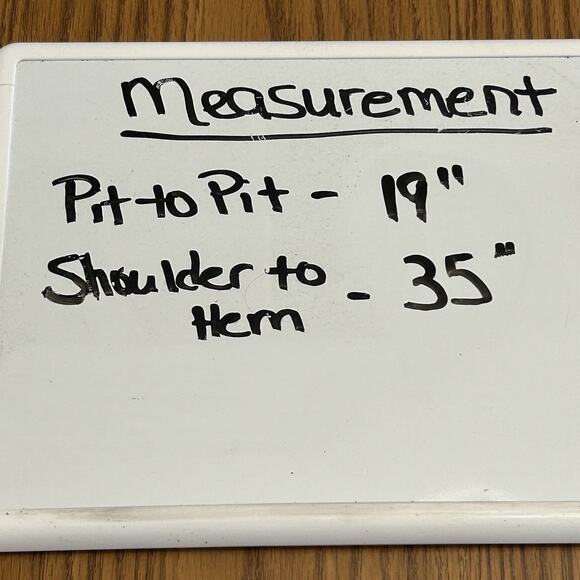 Measurement
Pit to Pit - 19"
Shoulder to - 35"
Hem